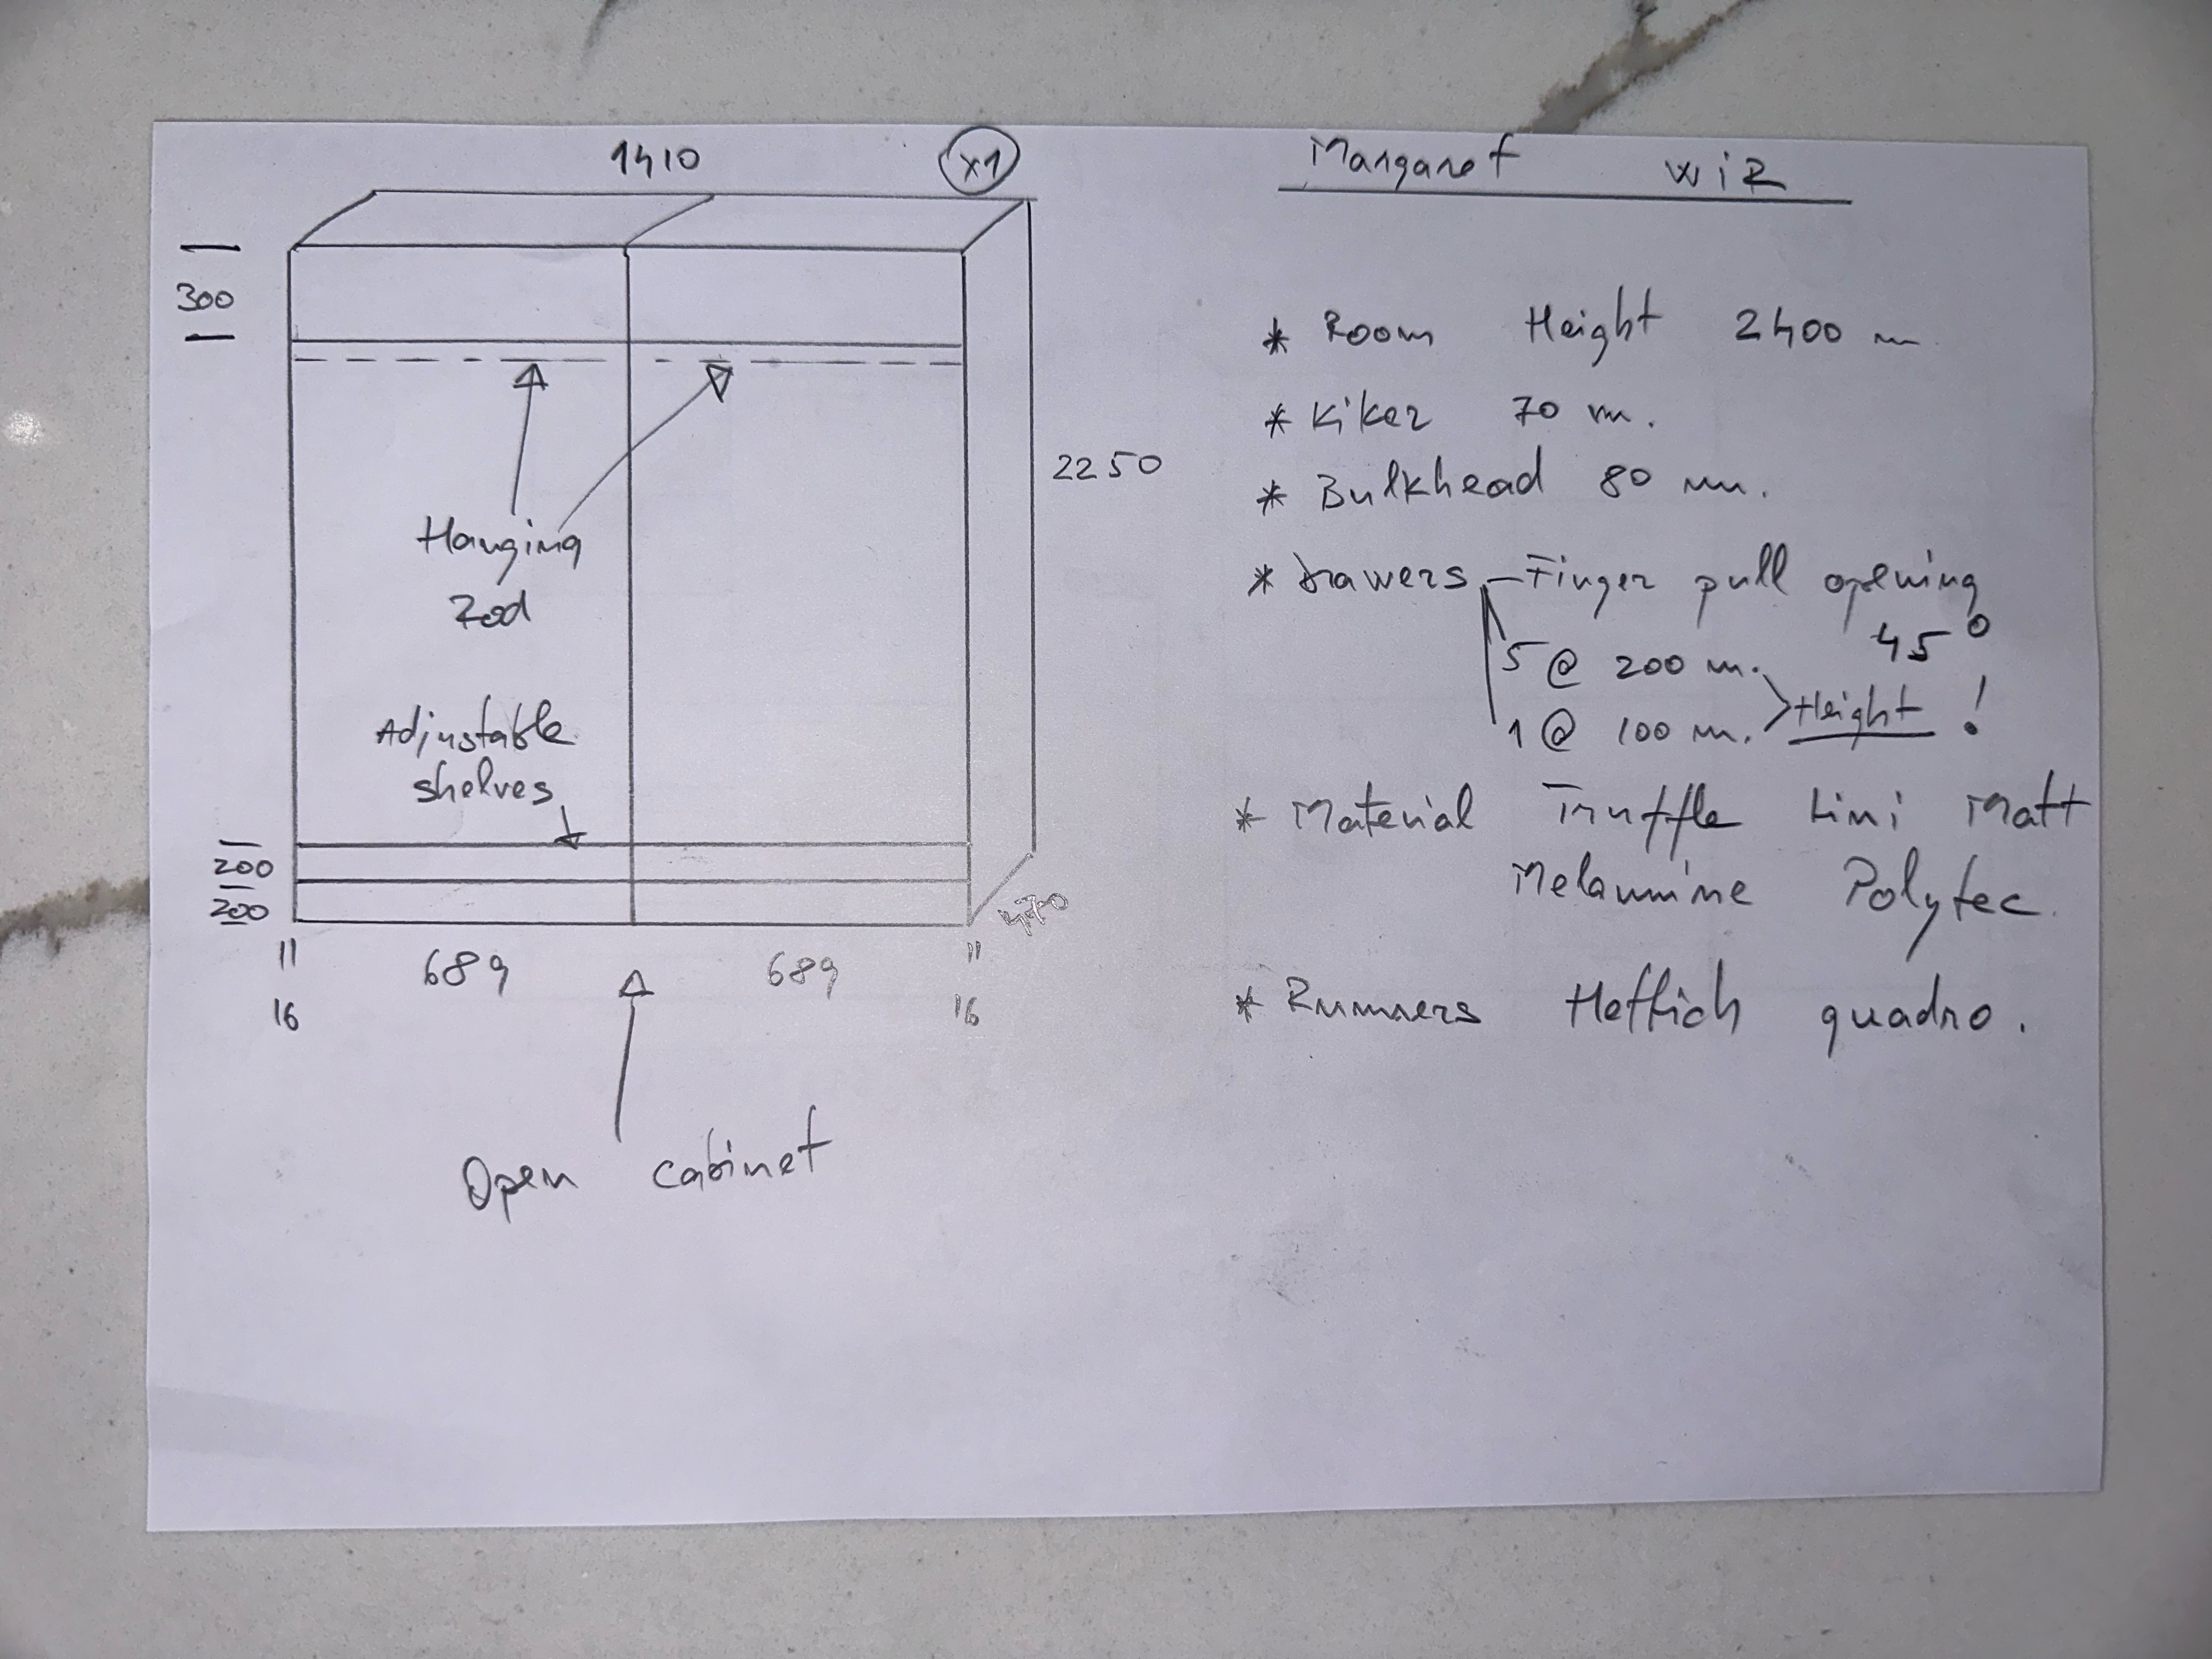 1410
x1
300
Hanging
Rod
Adjustable
shelves
200
200
2250
470
11
689
689
11
16
16
Open cabinet
Margaret WiR
* Room Height 2400 m
* Kiker 70 m.
* Bulkhead 80 mm.
* Drawers - Finger pull opening
45°
5 @ 200 m.
1 @ 100 m. > Height !
* Material Truffle Lini Matt
Melamine Polytec.
* Runners Hettich quadro.